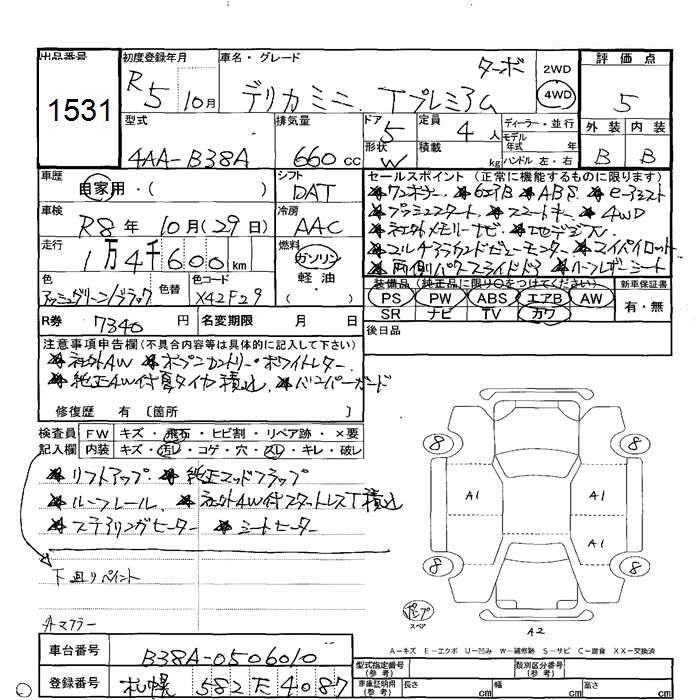 出品番号 初度登録年月 車名・グレード ターボ 2WD 評価点
1531 R5 10月 デリカミニ Tプレミアム 4WD 5
型式 排気量 ドア 5 定員 4人 ディーラー・並行 外装 内装
4AA-B38A 660cc 形状 W 積載 kg モデル年式 年式 ハンドル 左・右 B B
車歴 自家用・( ) シフト DAT セールスポイント (正常に機能するものに限ります)
★ワンオーナー ★6エアB ★ABS ★e-アシスト
車検 R8年 10月(29日) 冷房 AAC ★プッシュスタート ★スマートキー ★4WD
★社外メモリーナビ ★地デジTV
走行 1万4千600km 燃料 ガソリン 軽油 ( ) ★マルチアラウンドビューモニター ★マイパイロット
★両側パワースライドドア ★ハーフレザーシート
色 アッシュグリーン/ブラック 色替 色コード X42F29 装備品 (純正品に限り○をつけてください) 新車保証書
PS PW ABS エアB AW 有・無
SR ナビ TV カワ
R券 7340円 名変期限 月 日 後日品
注意事項申告欄(不具合内容等は具体的に記入して下さい)
★社外AW ★オープンカントリー・ホワイトレター
★純正AW付夏タイヤ積込 ★バンパーガード
修復歴 有 〔箇所 〕
検査員 FW キズ・飛石・ヒビ割・リペア跡・×要
記入欄 内装 キズ・汚レ・コゲ・穴・スレ・キレ・破レ
★リフトアップ ★純正マッドフラップ
★ルーフレール ★社外AW付スタットレスT積込
★ステアリングヒーター ★シートヒーター
下回リペイント
外マフラー
8 8
A1 A1
A1
8 8
パンプ スペア
A2
A-キズ E-エクボ U-凹み W-補修跡 S-サビ C-腐食 XX-交換済
車台番号 B38A-0506010 型式指定番号(参考) 類別区分番号(参考)
登録番号 札幌 582 た 4087 車庫証明用(参考) 長さ cm 幅 cm 高さ cm